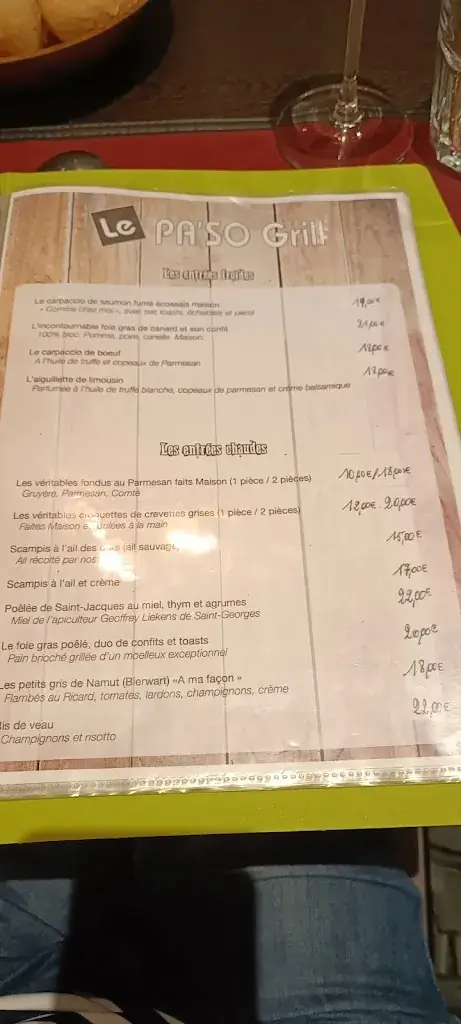 Le PA'SO Grill
Les entrées froides
Le carpaccio de saumon fumé écossais maison 19,00€
« Comme chez moi », avec ses toasts, échalotes et persil
L'incontournable foie gras de canard et son confit 21,00€
100% bloc. Pomme, poire, cannelle. Maison.
Le carpaccio de boeuf 18,00€
A l'huile de truffe et copeaux de Parmesan
L'aiguillette de limousin 18,00€
Parfumée à l'huile de truffe blanche, copeaux de parmesan et crème balsamique
Les entrées chaudes
Les véritables fondus au Parmesan faits Maison (1 pièce / 2 pièces) 10,00€/18,00€
Gruyère, Parmesan, Comté
Les véritables croquettes de crevettes grises (1 pièce / 2 pièces) 12,00€ - 20,00€
Faites Maison et roulées à la main
Scampis à l'ail des ours (ail sauvage) 15,00€
Ail récolté par nos
Scampis à l'ail et crème 17,00€
Poêlée de Saint-Jacques au miel, thym et agrumes 22,00€
Miel de l'apiculteur Geoffrey Liekens de Saint-Georges
Le foie gras poêlé, duo de confits et toasts 20,00€
Pain brioché grillée d'un moelleux exceptionnel
Les petits gris de Namut (Bierwart) «A ma façon » 18,00€
Flambés au Ricard, tomates, lardons, champignons, crème
Ris de veau 22,00€
Champignons et risotto